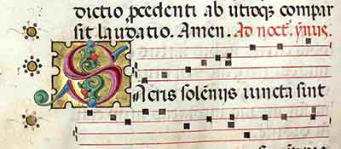 dictio ꝓcedenti ab utroqꝫ compar
sit laudatio. Amen. Ad noct͞. ymnꝰ.
Sacris solēnijs iuncta sint